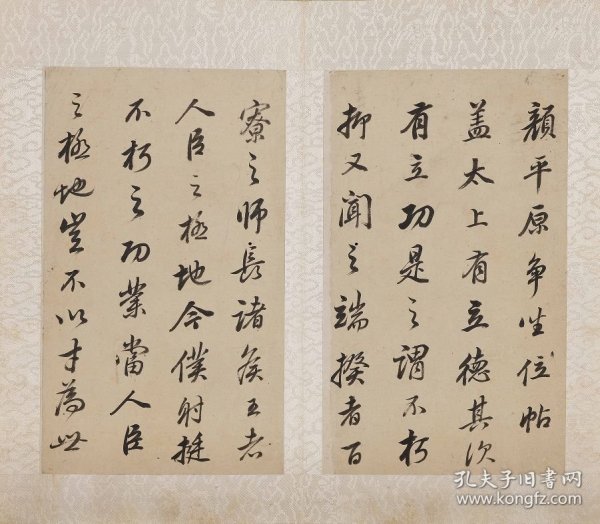 顏平原争坐位帖
盖太上有立德其次
有立功是之謂不朽
抑又聞之端揆者百
寮之師長諸矦王者
人臣之極地今僕射挺
不朽之功業當人臣
之極地豈不以才為世
孔夫子旧书网
www.kongfz.com